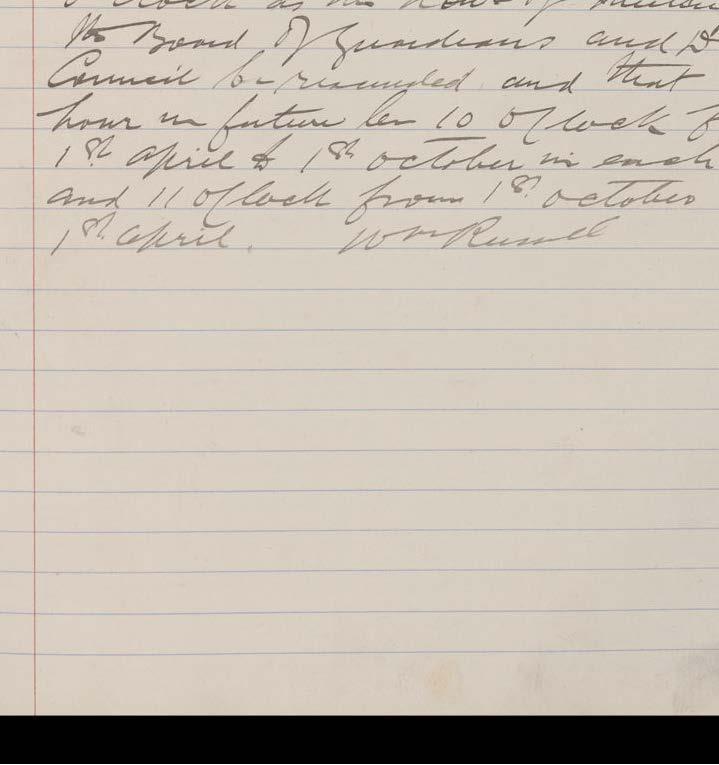 o'clock as the hour of
the Board of Guardians and D
Council be rescinded and that
hour in future be 10 O'Clock f
1st april to 1st october in each
and 11 O'Clock from 1st october
1st april. Wm Russell